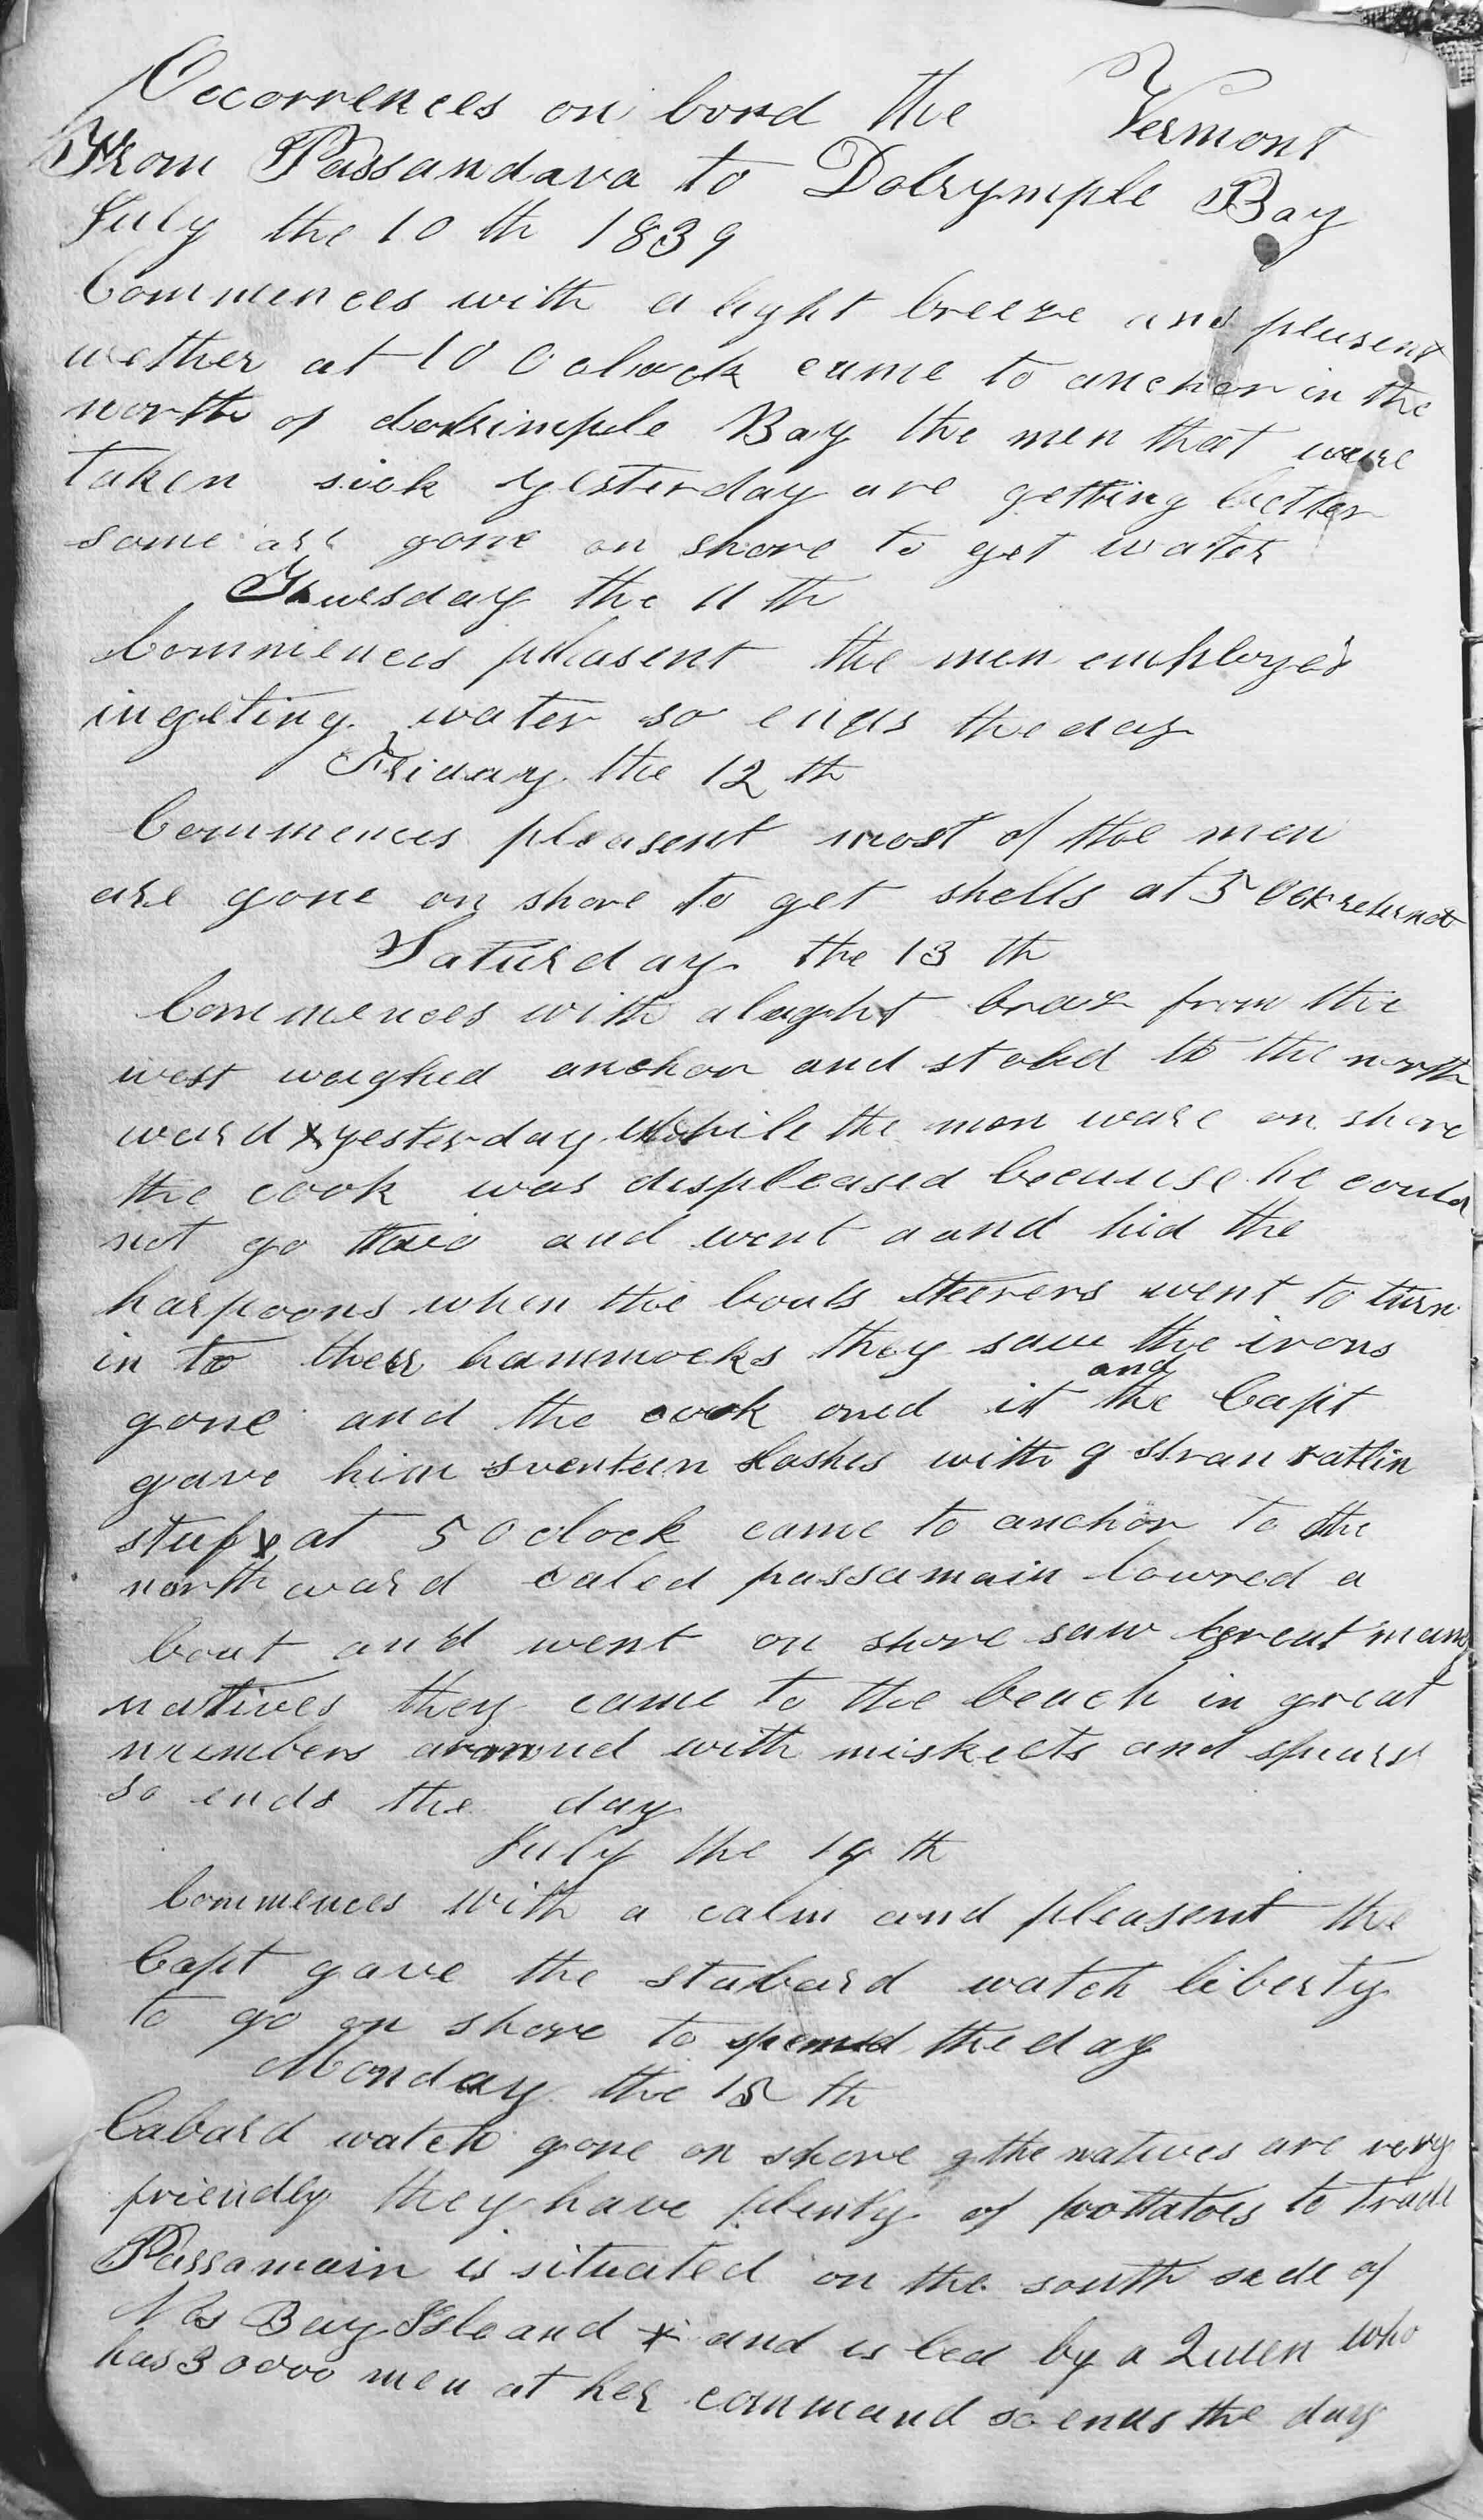 Occorrences on bord the Vermont
From Passandava to Dolrymple Bay
July the 10 th 1839
Commences with a light breeze and pleusent
wether at 10 O clock came to anchor in the
north of dolrimple Bay the men that were
taken sick yesterday are getting better
some are gone on shore to get water
Thuesday the 11 th
Commences pleasent the men employed
in geting water so ends the day
Friday the 12 th
Commences pleasent most of the men
are gone on shore to get shells at 5 Ock returned
Saturday the 13 th
Commences with a lught breaz from the
west weighed anchor and stood to the north
ward x yesterday while the men ware on shore
the cook was displeased because he could
not go and went a and hid the
harpoons when the bouts steerers went to turn
in to their hammocks they saw the irons
gone and the cook oned it and the Capt
gave him seventeen lashes with 9 stran ratlin
stuf x at 5 O clock came to anchor to the
north ward caled passamain lowred a
bout and went on shore saw great many
natives they came to the beach in great
numbers armed with miskects and spears
so ends the day
July the 14 th
Commences with a calm and pleasent the
Capt gave the stabard watch liberty
to go on shore to spend the day
Monday the 15 th
Labard watch gone on shore the natives are very
friendly they have plenty of pottatoes to trade
Passamain is situated on the south side of
Nos Bay Isleand x and is led by a Queen who
has 30000 men at her command so ends the day